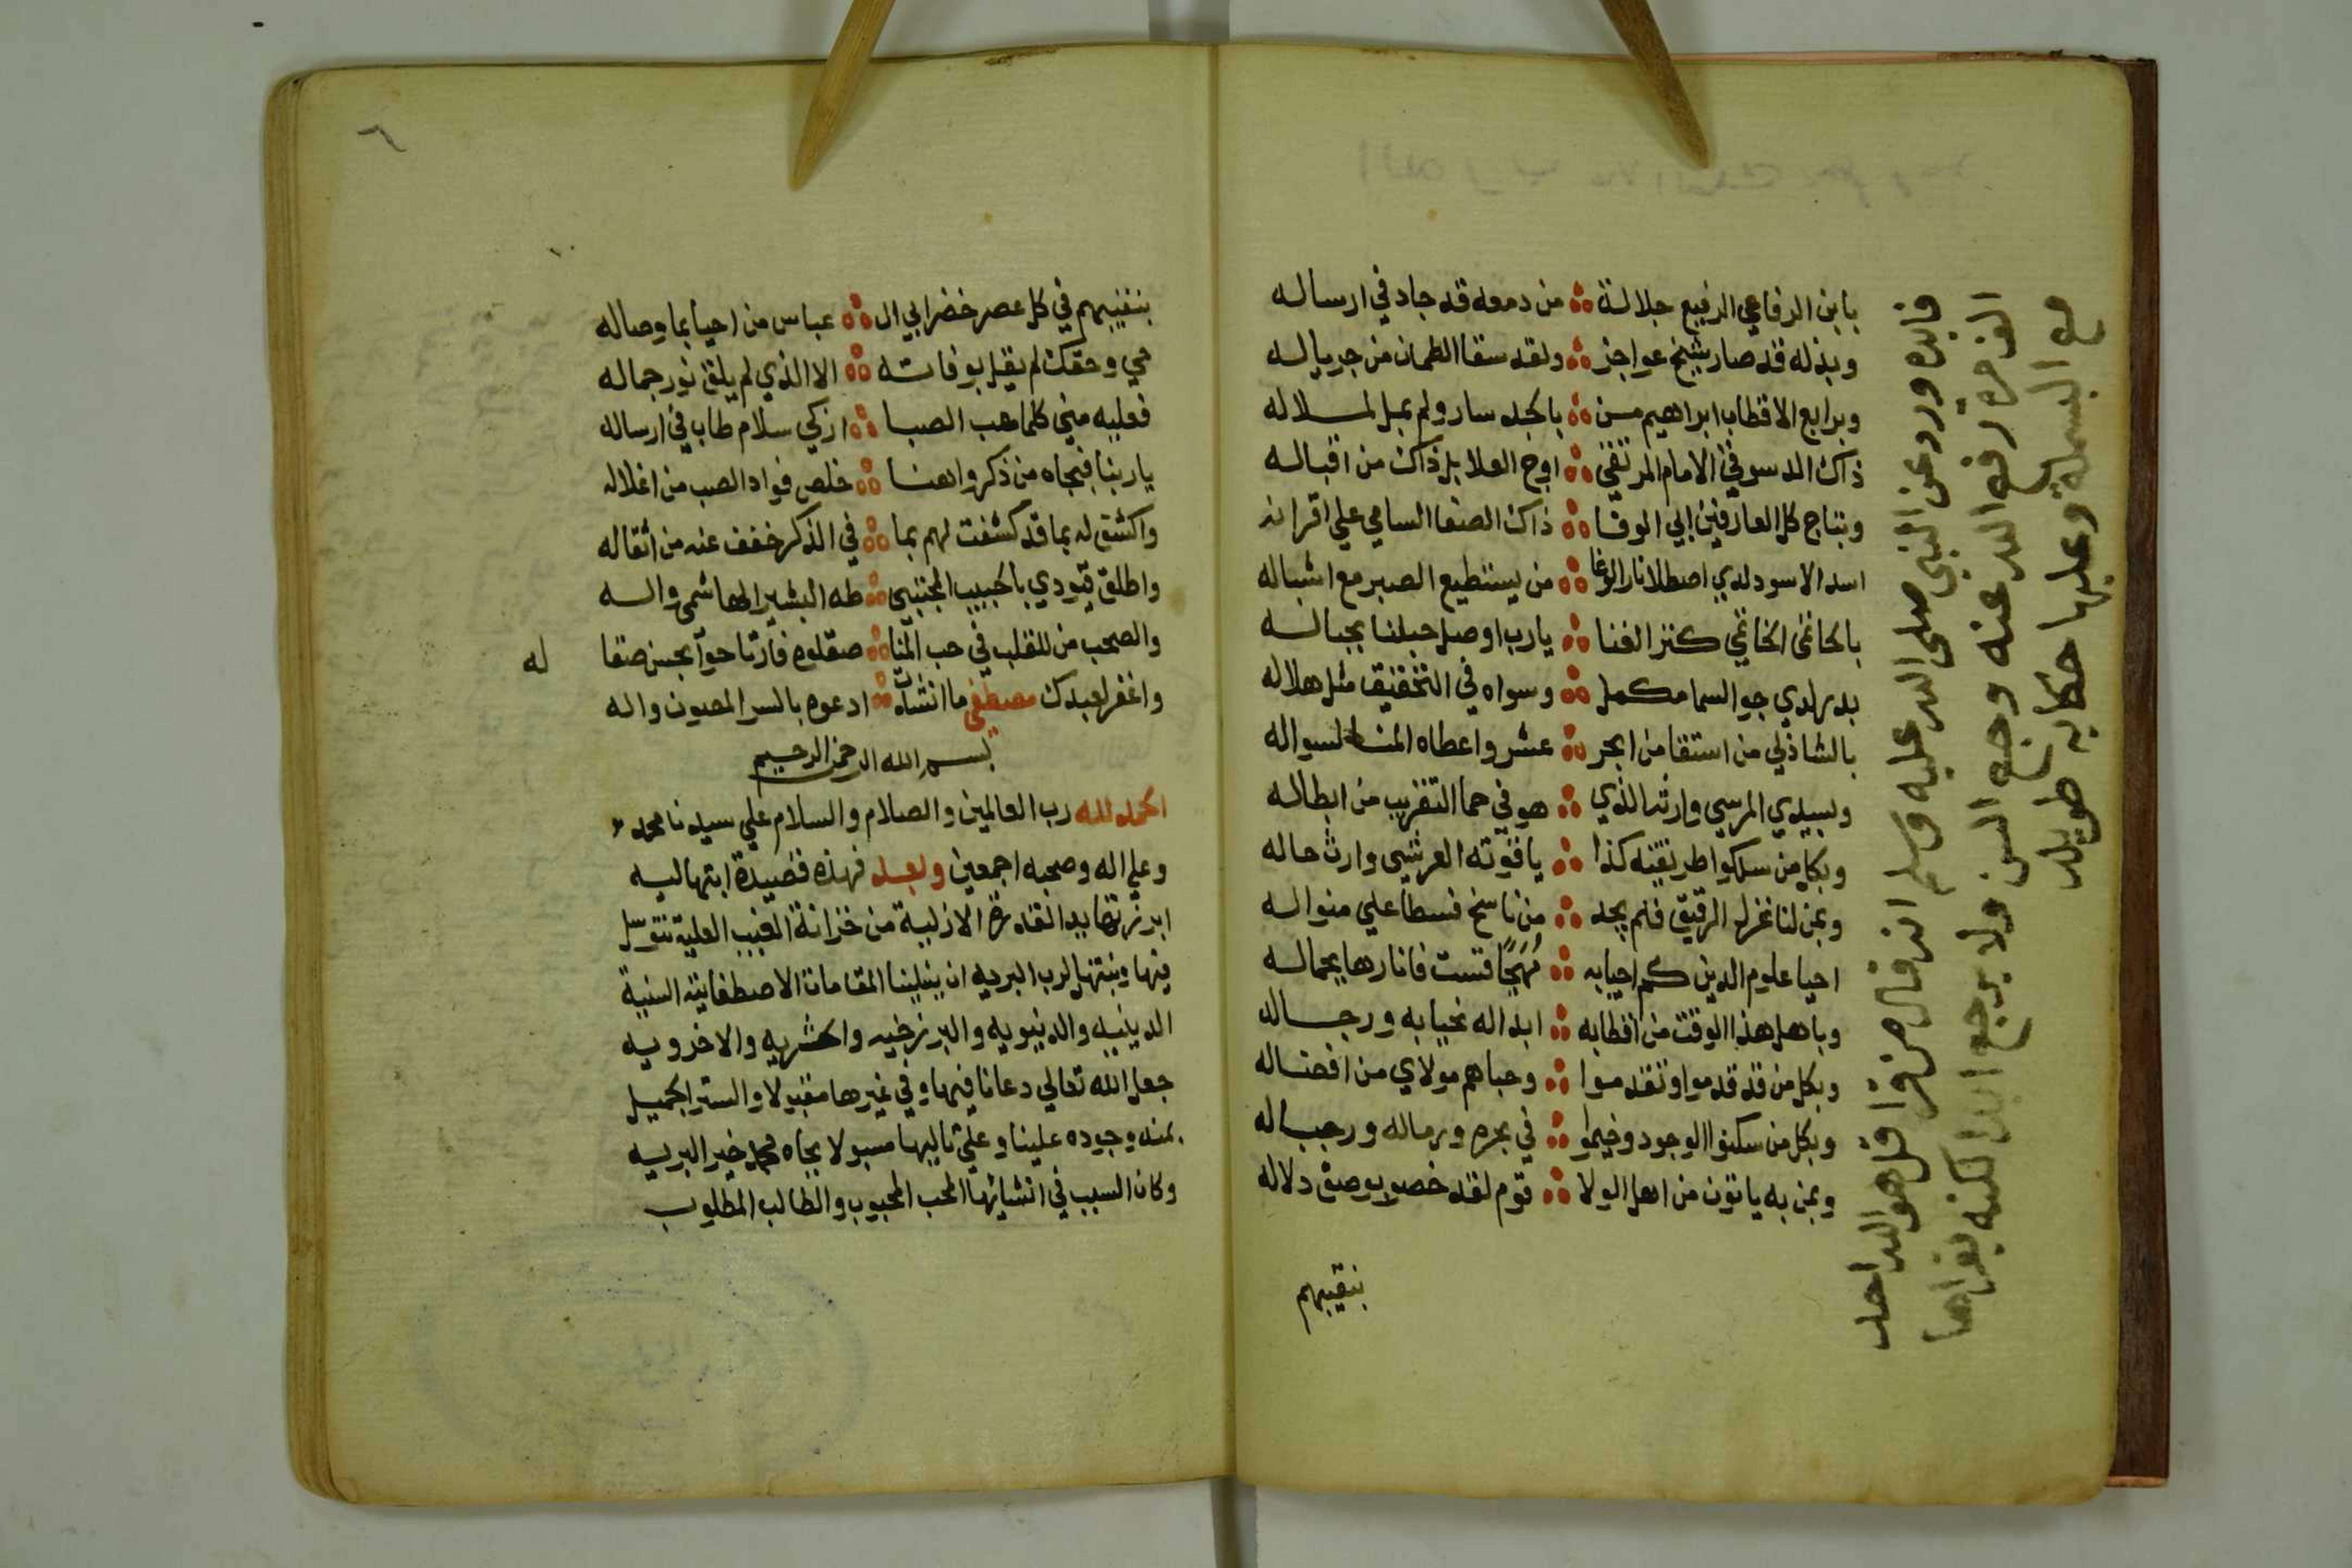 بابن الرفاعي الرفيع جلالة ∴ من دمعه قد جاد في ارساله
وبذله قد صار شيخ عواجز ∴ ولقد سقا الظمان من جرياله
وبرابع الاقطاب ابراهيم من ∴ بالجد سار ولم يمل لملاله
ذاك الدسوقي الامام المرتقي ∴ اوج العلا بل ذاك من اقباله
وبتاج كل العارفين ابي الوفا ∴ ذاك الصفا السامي علي اقرانه
اسد الاسود لدي اصطلا نار الوغا ∴ من يستطيع الصبر مع اشباله
بالحاتمي الخاتمي كنز الفنا ∴ يارب اوصل حبلنا بحباله
بدر لدي جو السما مكمل ∴ وسواه في التحقيق مثل هلاله
بالشاذلي من استقا من ابحر ∴ عشر واعطاه المنا لسواله
وبسيدي المرسي وارثه الذي ∴ هو في حما التقريب من ابطاله
وبكل من سلكوا طريقته كذا ∴ ياقوته العرشي وارث حاله
وبمن لنا غزل الرقيق فلم يجد ∴ من ناسخ فسطا علي منواله
احيا علوم الدين كم احيابه ∴ مُهَجًا قست فانارها بجماله
وباهل هذا الوقت من اقطابه ∴ ابداله نجبابه ورجاله
وبكل من قد قدموا وتقدموا ∴ وحباهم مولاي من افضاله
وبكل من سكنوا الوجود وخيموا ∴ في بحره ورماله ورجباله
وبمن به ياتون من اهل الولا ∴ قوم لقد خصوا بوصف دلاله
بنقيبهم
فايده ورد عن النبي صلى الله عليه وسلم انه قال من قرا قل هو الله احد
الف مرة رفع الله عنه وجع السن ولا يرجع ابدا لكنه يقراها
مع البسملة وعليها حكايه طويله
٦
بنقيبهم في كل عصر خضر ابي ال ∴ عباس من احيا بما وصاله
حي وحقك لم يقل بوفاته ∴ الا الذي لم يلق نور جماله
فعليه مني كلما هب الصبا ∴ ازكي سلام طاب في ارساله
ياربنا فبجاه من ذكروا هنا ∴ خلص فواد الصب من اغلاله
واكشف له بما قد كشفت لهم بما ∴ في الذكر خفف عنه من اثقاله
واطلق قيودي بالحبيب المجتبي ∴ طه البشير الهاشمي واله
والصحب من للقلب في حب المنا ∴ صقلوه فارتاحوا بحسن صقا له
واغفر لعبدك مصطفي ما انشات ∴ ادعوه بالسر المصون واله
بسم الله الرحمن الرحيم
الحمد لله رب العالمين والصلام والسلام علي سيدنا محمد
وعلي اله وصحبه اجمعين وبعد فهذه قصيدة ابتهاليه
ابرزتها يد القدرة الازلية من خزانة الغيب العلية نتوسل
فيها ونبتهل لرب البريه ان ينيلنا المقامات الاصطفائيه السنية
الدينيه والدنيويه والبرزخيه والحشريه والاخرويه
جعل الله تعالي دعانا فيها وفي غيرها مقبولا والستر الجميل
بمنه وجوده علينا وعلي تاليها مسبولا بجاه محمد خير البريه
وكان السبب في انشائها المحب المحبوب والطالب المطلوب